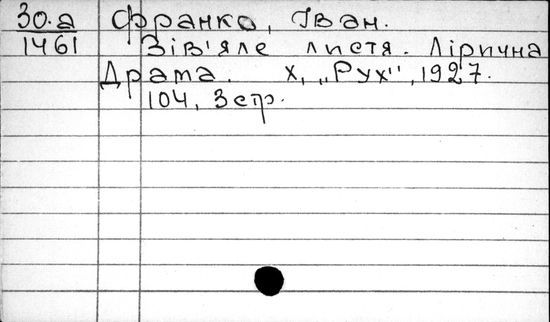 30.а Франко, Іван.
1461 Зів'яле листя. Лірична
Драма. Х, „Рух", 1927.
104, 3 стр.